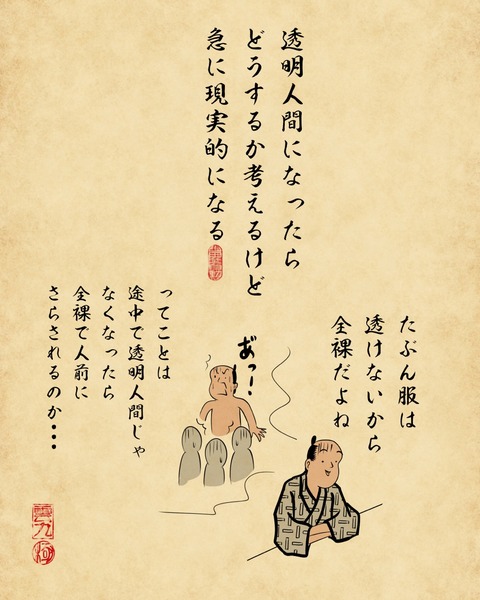 透明人間になったら
どうするか考えるけど
急に現実的になる
たぶん服は
透けないから
全裸だよね
あっ!
ってことは
途中で透明人間じゃ
なくなったら
全裸で人前に
さらされるのか・・・